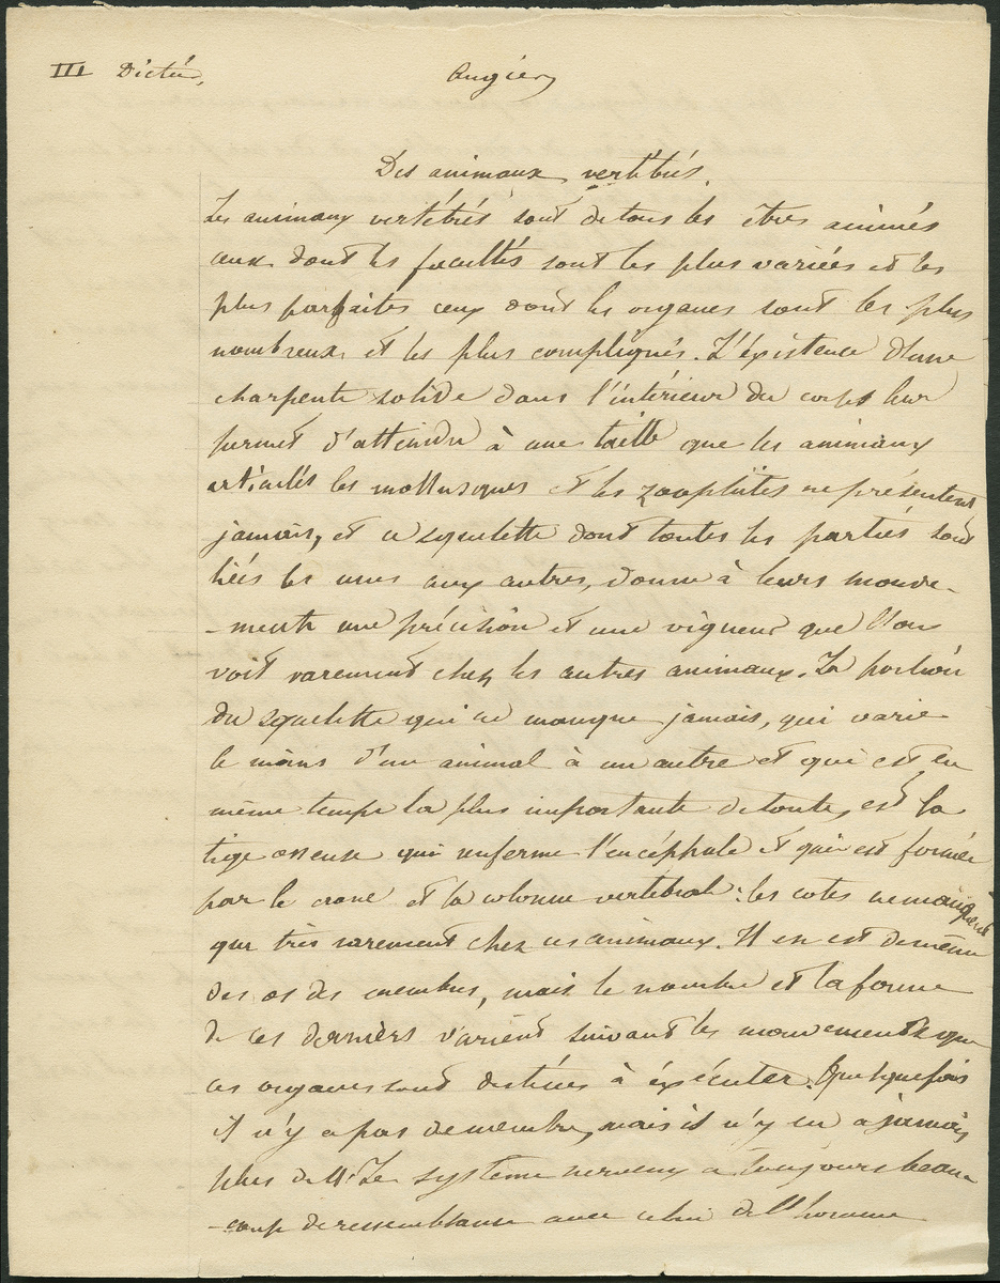 III Dictée,
Augier
Des animaux vertébrés.
Les animaux vertébrés sont de tous les êtres animés
ceux dont les facultés sont les plus variées et les
plus parfaites ceux dont les organes sont les plus
nombreux et les plus compliqués. L'éxistence d'une
charpente solide dans l'intérieur du corps leur
permet d'atteindre à une taille que les animaux
articulés les mollusques et les zoophites ne présentent
jamais, et ce squelette dont toutes les parties sont
liées les unes aux autres, donne à leurs mouve-
-ments une précision et une vigueur que l'on
voit rarement chez les autres animaux. La portion
du squelette qui ne manque jamais, qui varie
le moins d'un animal à un autre et qui est en
même temps la plus importante de toute, est la
tige osseuse qui renferme l'encéphale et qui est formée
par le crane et la colonne vertébrale : les cotes ne manquent
que très rarement chez ces animaux. Il en est de même
des os des membres, mais le nombre et la forme
de ces derniers varient suivant les mouvements que
ces organes sont destinés à éxécuter. Quelquefois
il n'y a pas de membre, mais il n'y en a jamais
plus de 4. Le système nerveux a toujours beau
-coup de ressemblance avec celui de l'homme